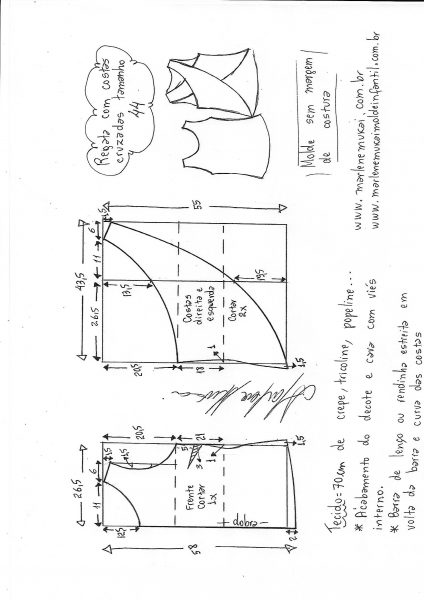 Regata com costas
cruzadas tamanho
44
Molde sem margem
de costura
www.marlenemukai.com.br
www.marlenemukaimoldeinfantil.com.br
55
43,5
6
1,5
11
26,5
13,5
13,5
Costas
direita e
esquerda
Cortar
2x
1
20,5
18
1,5
20,5
21
1,5
26,5
6
1,5
1,5
11
5
3
1
Frente
Cortar
1x
- dobra +
12,5
58
2
Tecido=70cm de crepe, tricoline, popeline...
* Acabamento do decote e cava com viés
interno.
* Barra de lenço ou rendinha estreita em
volta da barra e curva das costas